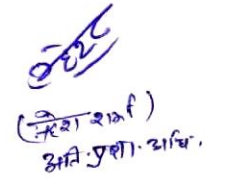 (महेश शर्मा)
अति. प्रशा. अधि.